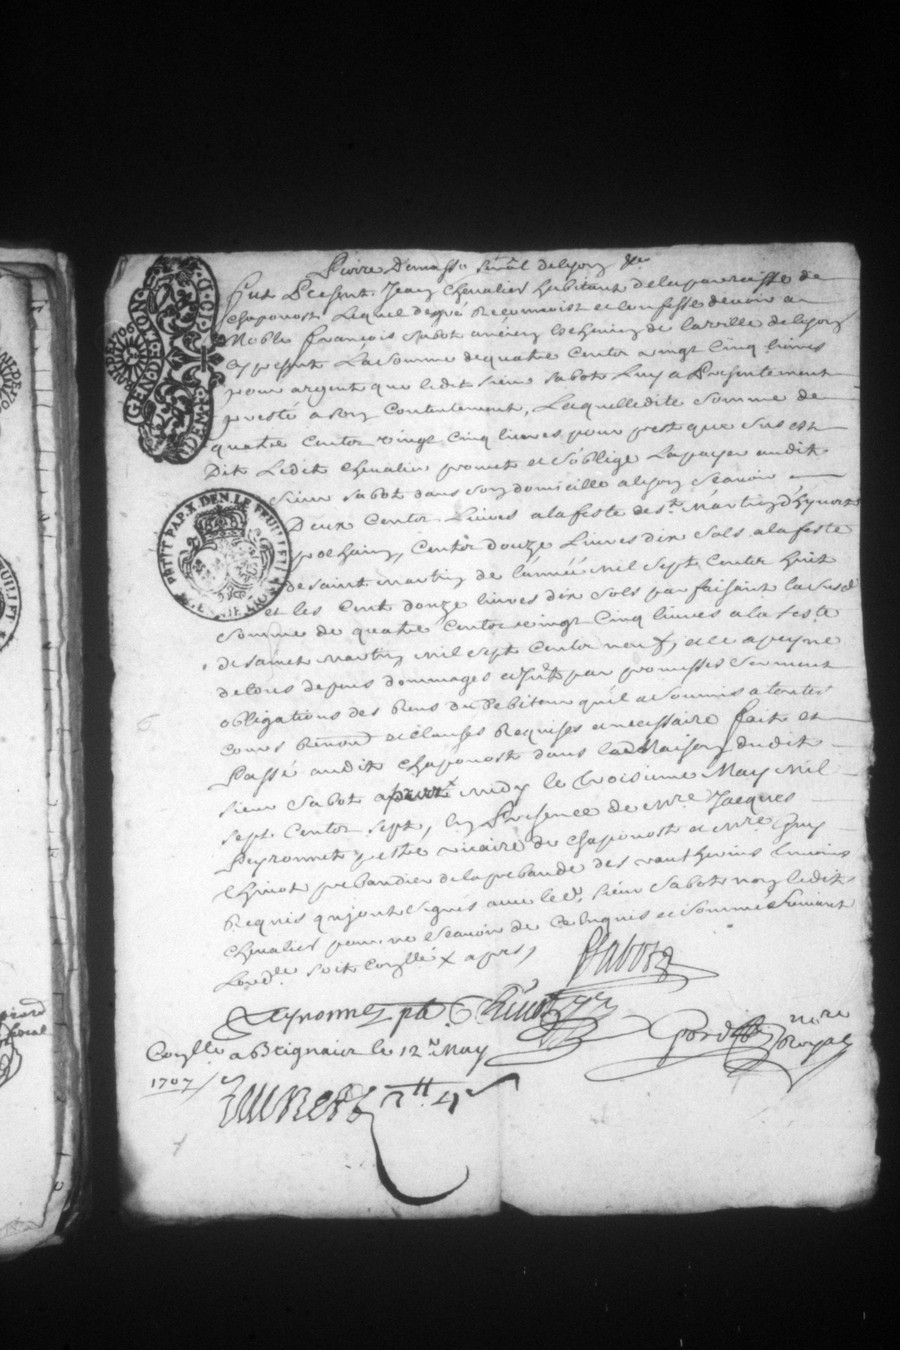 Pierre Demasso Sénâl delyon &c
fut Present Jean Chevalier habitant delaparroisse de
chaponost Lequel degré Reconnoist et Confesse devoir a
Noble françois Sabot ancien Echevin de laville delyon
Cy present La somme dequatre Centz vingt Cinq livres
pour argent que ledit sieur Sabot Luy a Presentement
presté a son Contentement, Laquelledite Somme de
quatre Centz vingt Cinq livres pour prest que Sus est
Dit Ledit Chevalier promet et s'oblige La payer audit
sieur Sabot dans son domicille alyon Scavoir
Deux Centz Livres alafeste de st. Martin d'hyver
prochain, Centz douze Livres dix Sols alafeste
de saint martin de l'année Mil Sept Centz huit
et les Cent douze livres dix Sols parfaisant la susd
Somme de quatre Centz vingt Cinq livres a la feste
de saint Martin Mil Sept Centz neuf, et ce apeyne
detous depens dommages par promesses Serment
obligations des Biens du Debiteur qu'il a Soumis atoutes
cours Renond et Clauses Requises necessaire fait et
Passé audit Chaponost dans la Maison dudit
sieur Sabot midy le troisieme May Mil
Sept Centz Sept, En Presence de mre Jacques
Peyronnet pestre vicaire de chaponost et mre Guy
prebandier dela prebande des temoins
Requis qujont Signés avec led. Sieur Sabot non ledit
Chevalier pour ne Scavoir de Ce Enquis et Sommé Suivant
Lord.ce soit Conllé x
Sabot
Peyronnet ptre
nore Royal
Conllé a Beignais le 12e May
1707